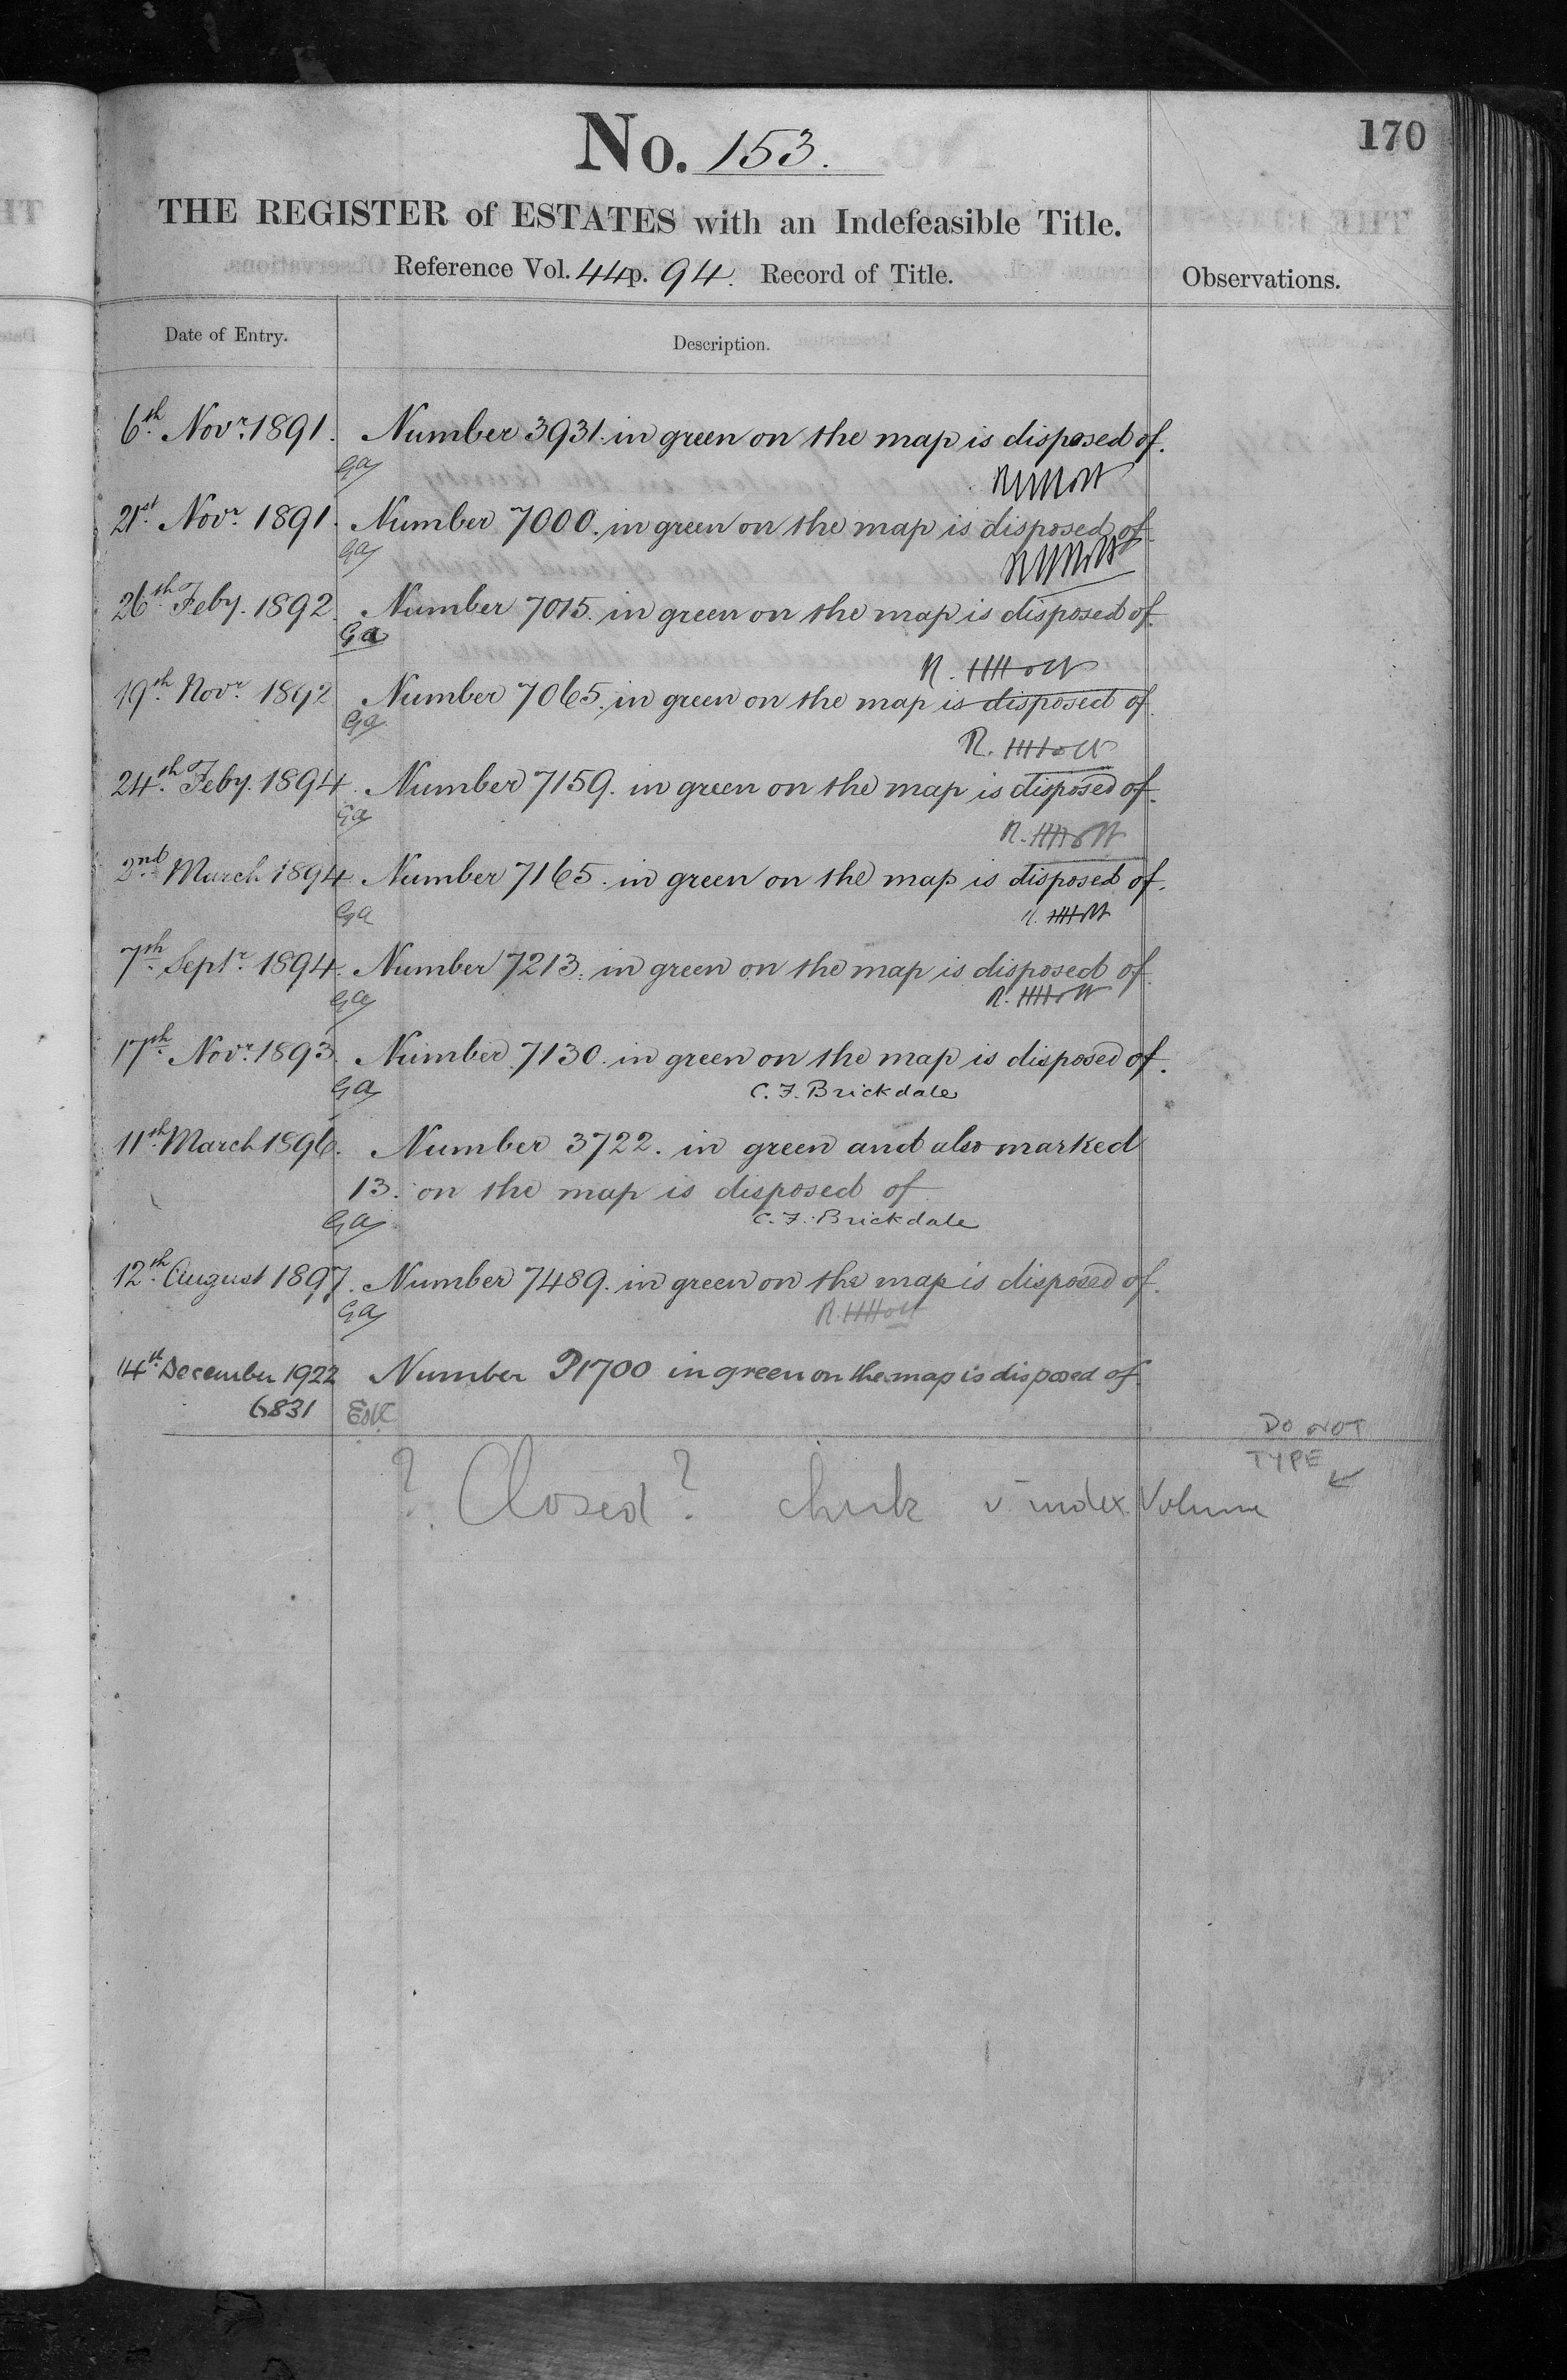 170
No. 153.
THE REGISTER of ESTATES with an Indefeasible Title.
Reference Vol. 44 p. 94. Record of Title.
Observations.
Date of Entry.
Description.
6th Novr. 1891. Number 3931. in green on the map is disposed of.
Ga
21st Novr. 1891. Number 7000. in green on the map is disposed of.
Ga
26th Feby. 1892. Number 7015. in green on the map is disposed of.
Ga
19th Novr. 1892 Number 7065. in green on the map is disposed of.
Ga
24th Feby. 1894. Number 7159. in green on the map is disposed of.
Ga
2nd March 1894 Number 7165. in green on the map is disposed of.
Ga
7th Septr. 1894. Number 7213. in green on the map is disposed of.
Ga
17th Novr. 1893. Number 7130. in green on the map is disposed of.
Ga C. F. Brickdale
11th March 1896. Number 3722. in green and also marked
13. on the map is disposed of
Ga C. F. Brickdale
12th August 1897. Number 7489. in green on the map is disposed of.
Ga
14th December 1922 Number P1700 in green on the map is disposed of.
6831
DO NOT
TYPE
? Closed? check index Volume